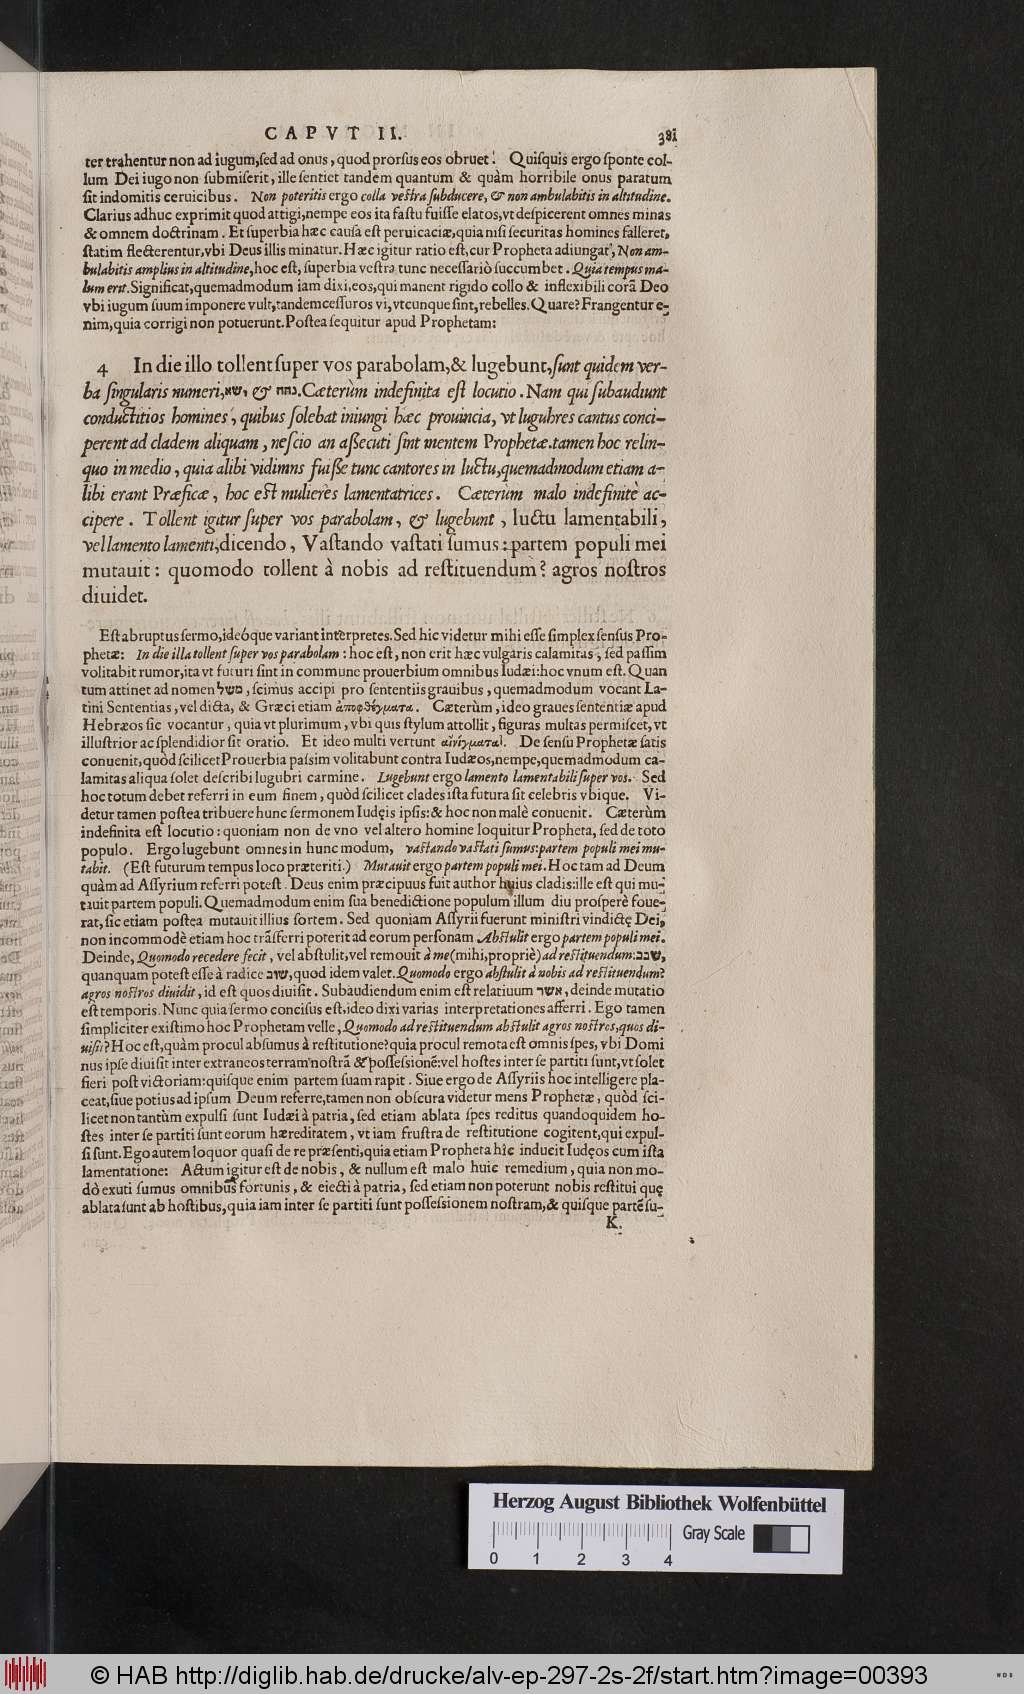 CAPVT II.
381
ter trahentur non ad iugum, sed ad onus, quod prorsus eos obruet. Quisquis ergo sponte col-
lum Dei iugo non submiserit, ille sentiet tandem quantum & quàm horribile onus paratum
sit indomitis ceruicibus. Non poteritis ergo colla vestra subducere, & non ambulabitis in altitudine.
Clarius adhuc exprimit quod attigi, nempe eos ita fastu fuisse elatos, vt despicerent omnes minas
& omnem doctrinam. Et superbia hæc causa est peruicaciæ, quia nisi securitas homines falleret,
statim flecterentur, vbi Deus illis minatur. Hæc igitur ratio est, cur Propheta adiungat, Non am-
bulabitis amplius in altitudine, hoc est, superbia vestra tunc necessariò succumbet. Quia tempus ma-
lum erit. Significat, quemadmodum iam dixi, eos, qui manent rigido collo & inflexibili corã Deo
vbi iugum suum imponere vult, tandem cessuros vi, vtcunque sint, rebelles. Quare? Frangentur e-
nim, quia corrigi non potuerunt. Postea sequitur apud Prophetam:
4 In die illo tollent super vos parabolam, & lugebunt, sunt quidem ver-
ba singularis numeri, ישא & נהה. Cæterùm indefinita est locutio. Nam qui subaudiunt
conductitios homines, quibus solebat iniungi hæc prouincia, vt lugubres cantus conci-
perent ad cladem aliquam, nescio an assecuti sint mentem Prophetæ. tamen hoc relin-
quo in medio, quia alibi vidimns fuisse tunc cantores in luctu, quemadmodum etiam a-
libi erant Præficæ, hoc est mulieres lamentatrices. Cæterùm malo indefinitè ac-
cipere. Tollent igitur super vos parabolam, & lugebunt, luctu lamentabili,
vel lamento lamenti, dicendo, Vastando vastati sumus: partem populi mei
mutauit: quomodo tollent à nobis ad restituendum? agros nostros
diuidet.
Est abruptus sermo, ideóque variant interpretes. Sed hic videtur mihi esse simplex sensus Pro-
phetæ: In die illa tollent super vos parabolam: hoc est, non erit hæc vulgaris calamitas, sed passim
volitabit rumor, ita vt futuri sint in commune prouerbium omnibus Iudæi: hoc vnum est. Quan
tum attinet ad nomen משל, scimus accipi pro sententiis grauibus, quemadmodum vocant La-
tini Sententias, vel dicta, & Græci etiam ἀποφθέγματα. Cæterùm, ideo graues sententiæ apud
Hebræos sic vocantur, quia vt plurimum, vbi quis stylum attollit, figuras multas permiscet, vt
illustrior ac splendidior sit oratio. Et ideo multi vertunt αἰνίγματα. De sensu Prophetæ satis
conuenit, quòd scilicet Prouerbia passim volitabunt contra Iudæos, nempe, quemadmodum ca-
lamitas aliqua solet describi lugubri carmine. Lugebunt ergo lamento lamentabili super vos. Sed
hoc totum debet referri in eum finem, quòd scilicet clades ista futura sit celebris vbique. Vi-
detur tamen postea tribuere hunc sermonem Iudęis ipsis: & hoc non malè conuenit. Cæterùm
indefinita est locutio: quoniam non de vno vel altero homine loquitur Propheta, sed de toto
populo. Ergo lugebunt omnes in hunc modum, vastando vastati sumus: partem populi mei mu-
tabit. (Est futurum tempus loco præteriti.) Mutauit ergo partem populi mei. Hoc tam ad Deum
quàm ad Assyrium referri potest. Deus enim præcipuus fuit author huius cladis: ille est qui mu-
tauit partem populi. Quemadmodum enim sua benedictione populum illum diu prosperè foue-
rat, sic etiam postea mutauit illius sortem. Sed quoniam Assyrii fuerunt ministri vindictę Dei,
non incommodè etiam hoc trãsferri poterit ad eorum personam. Abstulit ergo partem populi mei.
Deinde, Quomodo recedere fecit, vel abstulit, vel remouit à me (mihi, propriè) ad restituendum: שבב,
quanquam potest esse à radice שוב, quod idem valet. Quomodo ergo abstulit à nobis ad restituendum?
agros nostros diuidit, id est quos diuisit. Subaudiendum enim est relatiuum אשר, deinde mutatio
est temporis. Nunc quia sermo concisus est, ideo dixi varias interpretationes afferri. Ego tamen
simpliciter existimo hoc Prophetam velle, Quomodo ad restituendum abstulit agros nostros, quos di-
uisit? Hoc est, quàm procul absumus à restitutione? quia procul remota est omnis spes, vbi Domi
nus ipse diuisit inter extraneos terram nostrã & possessionẽ: vel hostes inter se partiti sunt, vt solet
fieri post victoriam: quisque enim partem suam rapit. Siue ergo de Assyriis hoc intelligere pla-
ceat, siue potius ad ipsum Deum referre, tamen non obscura videtur mens Prophetæ, quòd sci-
licet non tantùm expulsi sunt Iudæi à patria, sed etiam ablata spes reditus quandoquidem ho-
stes inter se partiti sunt eorum hæreditatem, vt iam frustra de restitutione cogitent, qui expul-
si sunt. Ego autem loquor quasi de re præsenti, quia etiam Propheta hîc inducit Iudęos cum ista
lamentatione: Actum igitur est de nobis, & nullum est malo huic remedium, quia non mo-
dò exuti sumus omnibus fortunis, & eiecti à patria, sed etiam non poterunt nobis restitui quę
ablata sunt ab hostibus, quia iam inter se partiti sunt possessionem nostram, & quisque partẽ su-
K.
Herzog August Bibliothek Wolfenbüttel
Gray Scale
0 1 2 3 4
© HAB http://diglib.hab.de/drucke/alv-ep-297-2s-2f/start.htm?image=00393